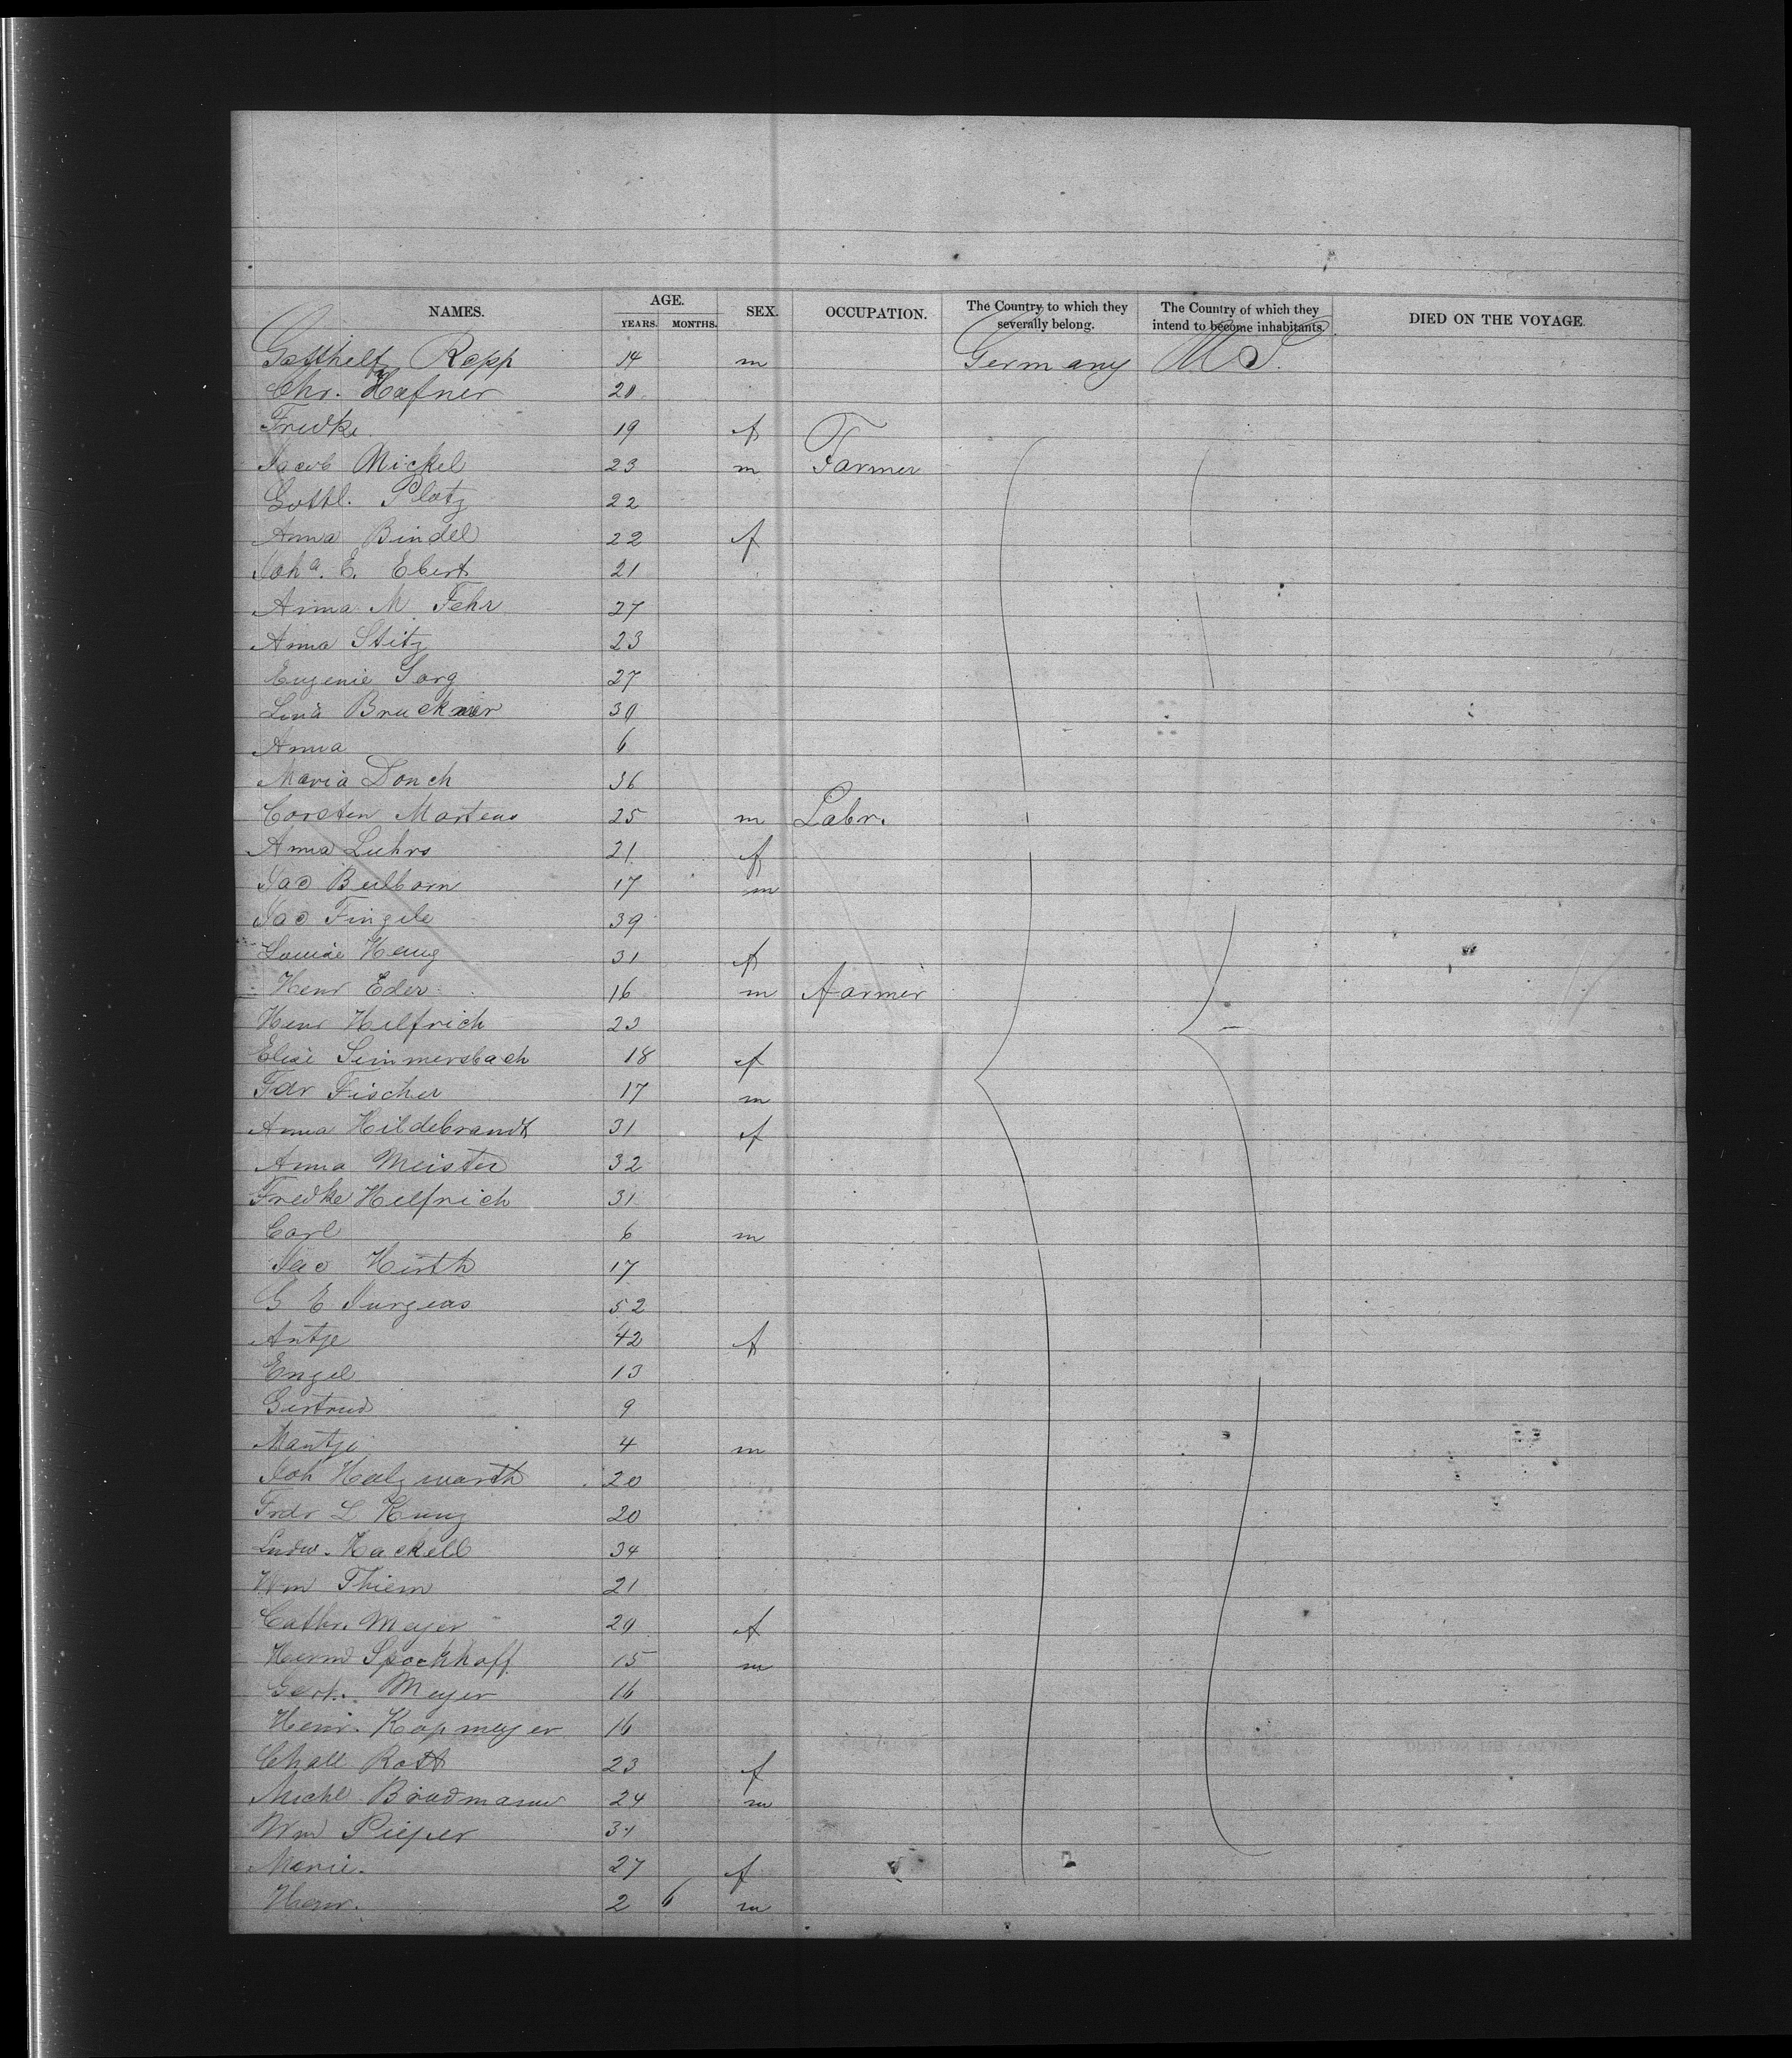 NAMES. AGE. SEX. OCCUPATION. The Country to which they severally belong. The Country of which they intend to become inhabitants. DIED ON THE VOYAGE.
YEARS. MONTHS.
Gotthilf Repp 14 m Germany U S.
Chr. Hafner 20
Fredke 19 f
Jacob Mickel 23 m Farmer
Gottl. Plotz 22
Anna Bindel 22 f
Joha. E. Ebert 21
Anna M Fehr 27
Anna Stitz 23
Eugenie Sorg 27
Lina Bruckner 30
Anna 6
Maria Donch 36
Carsten Martens 25 m Labr.
Anna Luhrs 21 f
Jac Beilborn 17 m
Jac Fingele 39
Louise Haug 31 f
Henr Eder 16 m Farmer
Henr Helfrich 23
Elise Simmersbach 18 f
Fdr Fischer 17 m
Anna Hildebrandt 31 f
Anna Meister 32
Fredke Helfrich 31
Carl 6 m
Jac Hirth 17
G E Jurgens 52
Antje 42 f
Engel 13
Gertrud 9
Mantje 4 m
Joh Holzwarth 20
Frdr L Kunz 20
Ludw. Hackell 34
Wm Thiem 21
Cathr. Meyer 20 f
Herm Spockhoff 15 m
Gerh. Meyer 16
Henr. Kopmeyer 16
Chatt Rott 23 f
Michl Bradmann 24 m
Wm Pieper 31
Marie. 27 f
Henr. 2 6 m